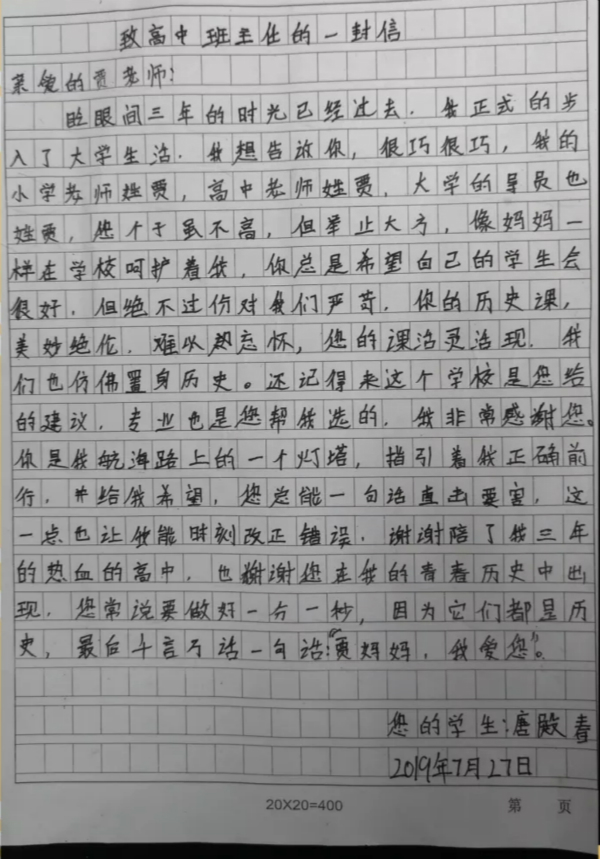 致高中班主任的一封信
亲爱的贾老师:
眨眼间三年的时光已经过去.我正式的步
入了大学生活.我想告诉你,很巧很巧,我的
小学老师姓贾,高中老师姓贾,大学的导员也
姓贾,您个子虽不高,但举止大方,像妈妈一
样在学校呵护着我,你总是希望自己的学生会
很好.但绝不过份对我们严苛.你的历史课,
美妙绝伦.难以忘怀,您的课活灵活现.我
们也仿佛置身历史。还记得来这个学校是您给
的建议.专业也是您帮我选的.我非常感谢您。
你是我航海路上的一个灯塔,指引着我正确前
行.并给我希望,您总能一句话直击要害,这
一点也让我能时刻改正错误.谢谢陪了我三年
的热血的高中.也谢谢您在我的青春历史中出
现.您常说要做好一分一秒,因为它们都是历
史,最后千言万语一句话:"贾妈妈,我爱您"。
您的学生:唐殿春
2019年7月27日
20X20=400
第 页